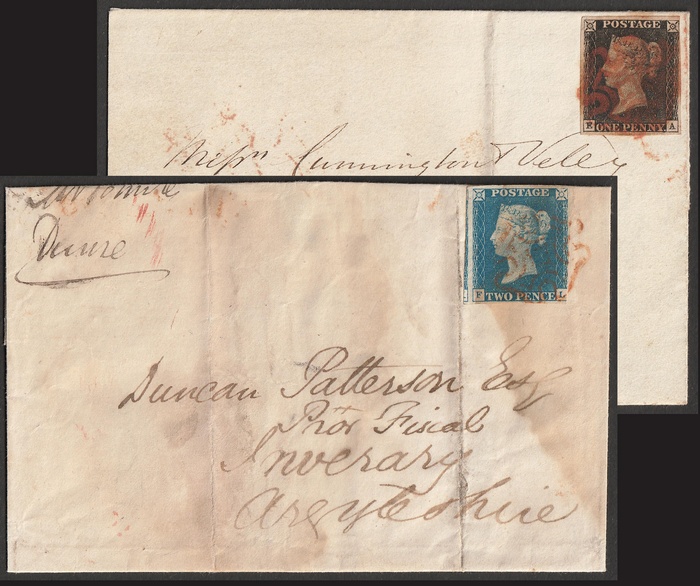 POSTAGE
E ONE PENNY A
Messrs Cunnington & Veley
Dunure
POSTAGE
F TWO PENCE L
Duncan Patterson Esq
Pror Fiscal
Inverary
Argyleshire